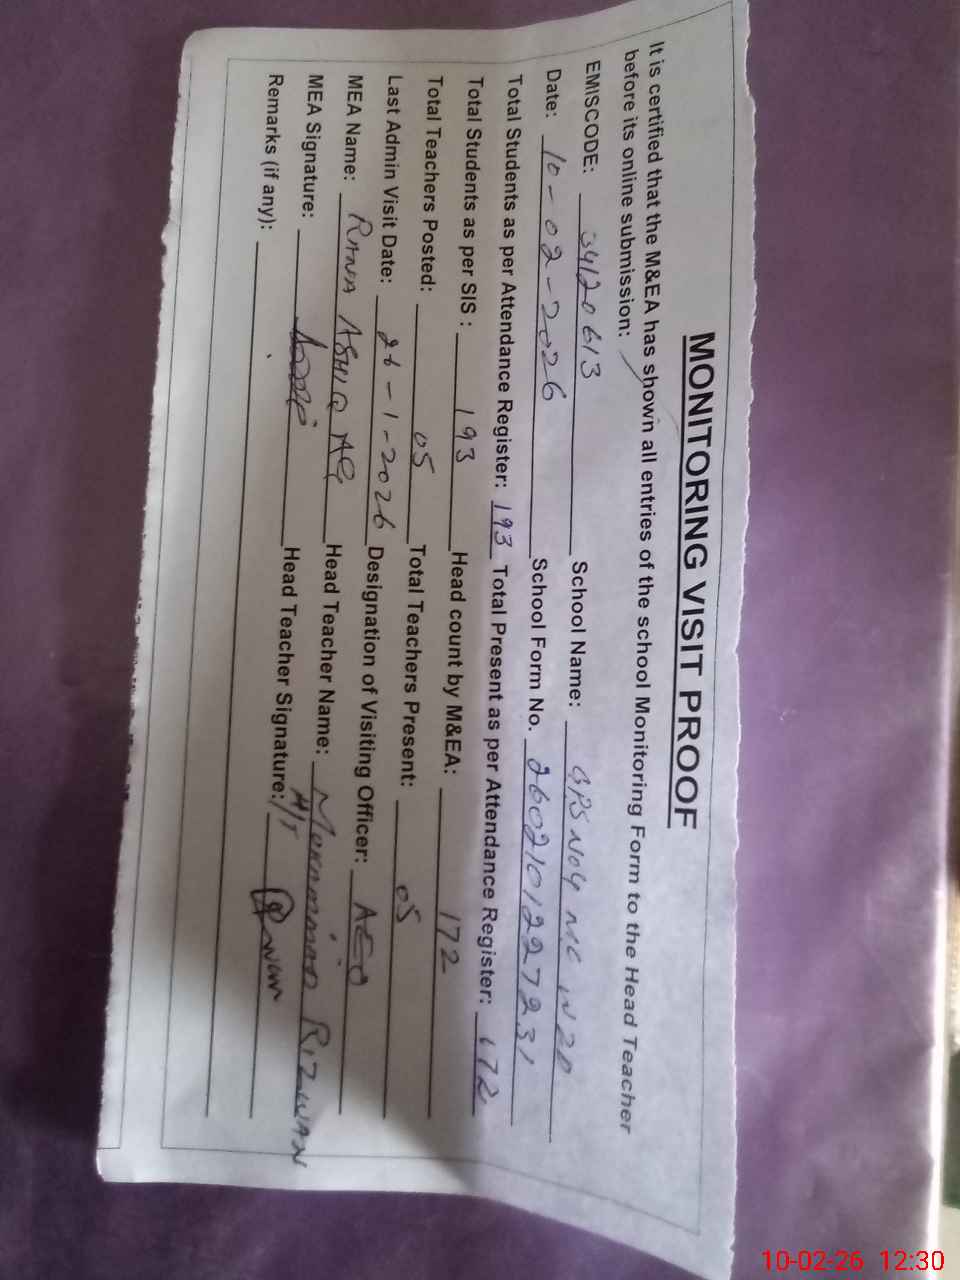 MONITORING VISIT PROOF
It is certified that the M&EA has shown all entries of the school Monitoring Form to the Head Teacher
before its online submission:
EMISCODE: 34120613 School Name: GPS No4 MC
Date: 10-02-2026 School Form No. 2602101227231
Total Students as per Attendance Register: 193 Total Present as per Attendance Register: 172
Total Students as per SIS : 193 Head count by M&EA: 172
Total Teachers Posted: 05 Total Teachers Present: 05
Last Admin Visit Date: 26-1-2026 Designation of Visiting Officer: AEO
MEA Name: RANA ASHIQ Head Teacher Name: MUHAMMAD RIZWAN
MEA Signature: Head Teacher Signature:
Remarks (if any):
10-02-26 12:30